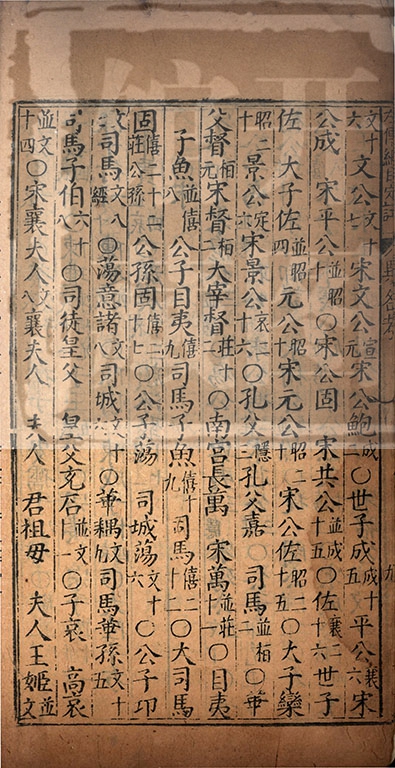 異名考
文十六文公文十七宋文公宣元宋公鮑成二○世子成成十五平公襄六宋
公成　宋平公並昭十○宋公固　宋共公並成十五○佐襄二十六世子
佐　大子佐並昭四元公昭十宋元公昭二十宋公佐昭二十五○大子欒
昭二十景公定六宋景公哀二十六○孔父隱三孔父嘉　司馬並桓二○華
父督桓元宋督桓二大宰督莊十二○南宮長萬　宋萬並莊十一○目夷
子魚並僖八公子目夷僖九司馬子魚僖十九司馬僖二十二○大司馬
固僖二十二莊公孫公孫固僖二十七○公子蕩　司城蕩文十六○公子卬
司馬文八經○蕩意諸文八司城文十六○華耦文九司馬華孫文十五
司馬子伯文十八○司徒皇父　皇父充石並文十一○子哀　高哀
並文十四○宋襄夫人文八襄夫人　夫人　君祖母　夫人王姬並文